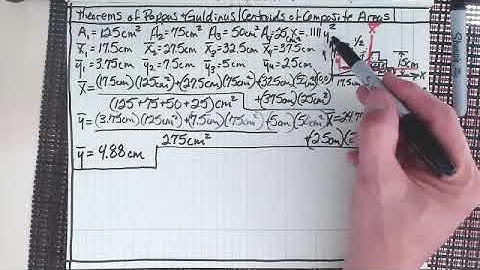 Theorems of Pappus & Guldinus | Centroids of Composite Areas
A₁=125cm² A₂=75cm² A₃=50cm² A₄=25cm² X=.1111y²
x̄₁=17.5cm x̄₂=27.5cm x̄₃=32.5cm x̄₄=37.5cm
ȳ₁=3.75cm ȳ₂=7.5cm ȳ₃=5cm ȳ₄=2.5cm
1/2
15cm
X
17.5
x̄=(17.5cm)(125cm²)+(27.5cm)(75cm²)+(32.5cm)(50cm²)
(125+75+50+25)cm² +(37.5cm)(25cm²)
ȳ=(3.75cm)(125cm²)+(7.5cm)(75cm²)+(5cm)(50cm²) x̄=24.77
275cm² +(2.5cm)(2
ȳ=4.88cm